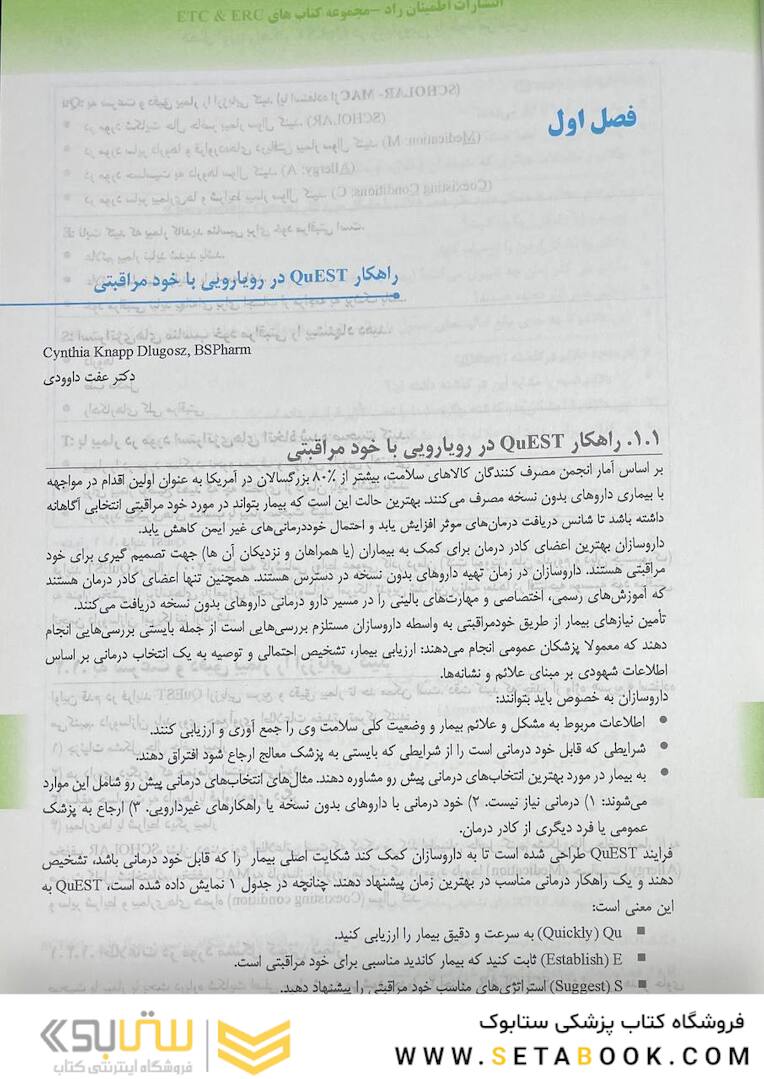 انتشارات اطمینان راد –مجموعه کتاب های ETC & ERC
فصل اول
راهکار QuEST در رویارویی با خود مراقبتی
Cynthia Knapp Dlugosz, BSPharm
دکتر عفت داوودی
۱.۱. راهکار QuEST در رویارویی با خود مراقبتی
بر اساس آمار انجمن مصرف کنندگان کالاهای سلامت، بیشتر از ۸۰٪ بزرگسالان در آمریکا به عنوان اولین اقدام در مواجهه
با بیماری داروهای بدون نسخه مصرف می‌کنند. بهترین حالت این است که بیمار بتواند در مورد خود مراقبتی انتخابی آگاهانه
داشته باشد تا شانس دریافت درمان‌های موثر افزایش یابد و احتمال خوددرمانی‌های غیر ایمن کاهش یابد.
داروسازان بهترین اعضای کادر درمان برای کمک به بیماران (یا همراهان و نزدیکان آن ها) جهت تصمیم گیری برای خود
مراقبتی هستند. داروسازان در زمان تهیه داروهای بدون نسخه در دسترس هستند. همچنین تنها اعضای کادر درمان هستند
که آموزش‌های رسمی، اختصاصی و مهارت‌های بالینی را در مسیر دارو درمانی داروهای بدون نسخه دریافت می‌کنند.
تأمین نیازهای بیمار از طریق خودمراقبتی به واسطه داروسازان مستلزم بررسی‌هایی است از جمله بایستی بررسی‌هایی انجام
دهند که معمولا پزشکان عمومی انجام می‌دهند: ارزیابی بیمار، تشخیص احتمالی و توصیه به یک انتخاب درمانی بر اساس
اطلاعات شهودی بر مبنای علائم و نشانه‌ها.
داروسازان به خصوص باید بتوانند:
• اطلاعات مربوط به مشکل و علائم بیمار و وضعیت کلی سلامت وی را جمع آوری و ارزیابی کنند.
• شرایطی که قابل خود درمانی است را از شرایطی که بایستی به پزشک معالج ارجاع شود افتراق دهند.
• به بیمار در مورد بهترین انتخاب‌های درمانی پیش رو مشاوره دهند. مثال‌های انتخاب‌های درمانی پیش رو شامل این موارد
می‌شوند: ۱) درمانی نیاز نیست. ۲) خود درمانی با داروهای بدون نسخه یا راهکارهای غیردارویی. ۳) ارجاع به پزشک
عمومی یا فرد دیگری از کادر درمان.
فرایند QuEST طراحی شده است تا به داروسازان کمک کند شکایت اصلی بیمار را که قابل خود درمانی باشد، تشخیص
دهند و یک راهکار درمانی مناسب در بهترین زمان پیشنهاد دهند. چنانچه در جدول ۱ نمایش داده شده است، QuEST به
این معنی است:
■ Qu (Quickly) به سرعت و دقیق بیمار را ارزیابی کنید.
■ E (Establish) ثابت کنید که بیمار کاندید مناسبی برای خود مراقبتی است.
■ S (Suggest) استراتژی‌های مناسب خود مراقبتی را پیشنهاد دهید.
فروشگاه کتاب پزشکی ستابوک
WWW.SETABOOK.COM
ستابوک
فروشگاه اینترنتی کتاب